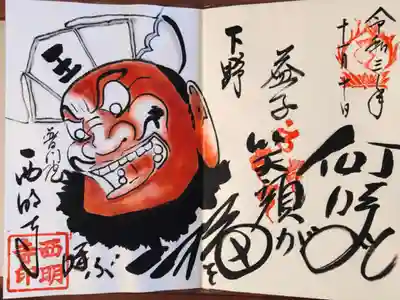 令和三年
十一月十日
何時も
笑顔が
福を
呼ぶ
下野
益子
王
普門院
西明寺
西明
寺印